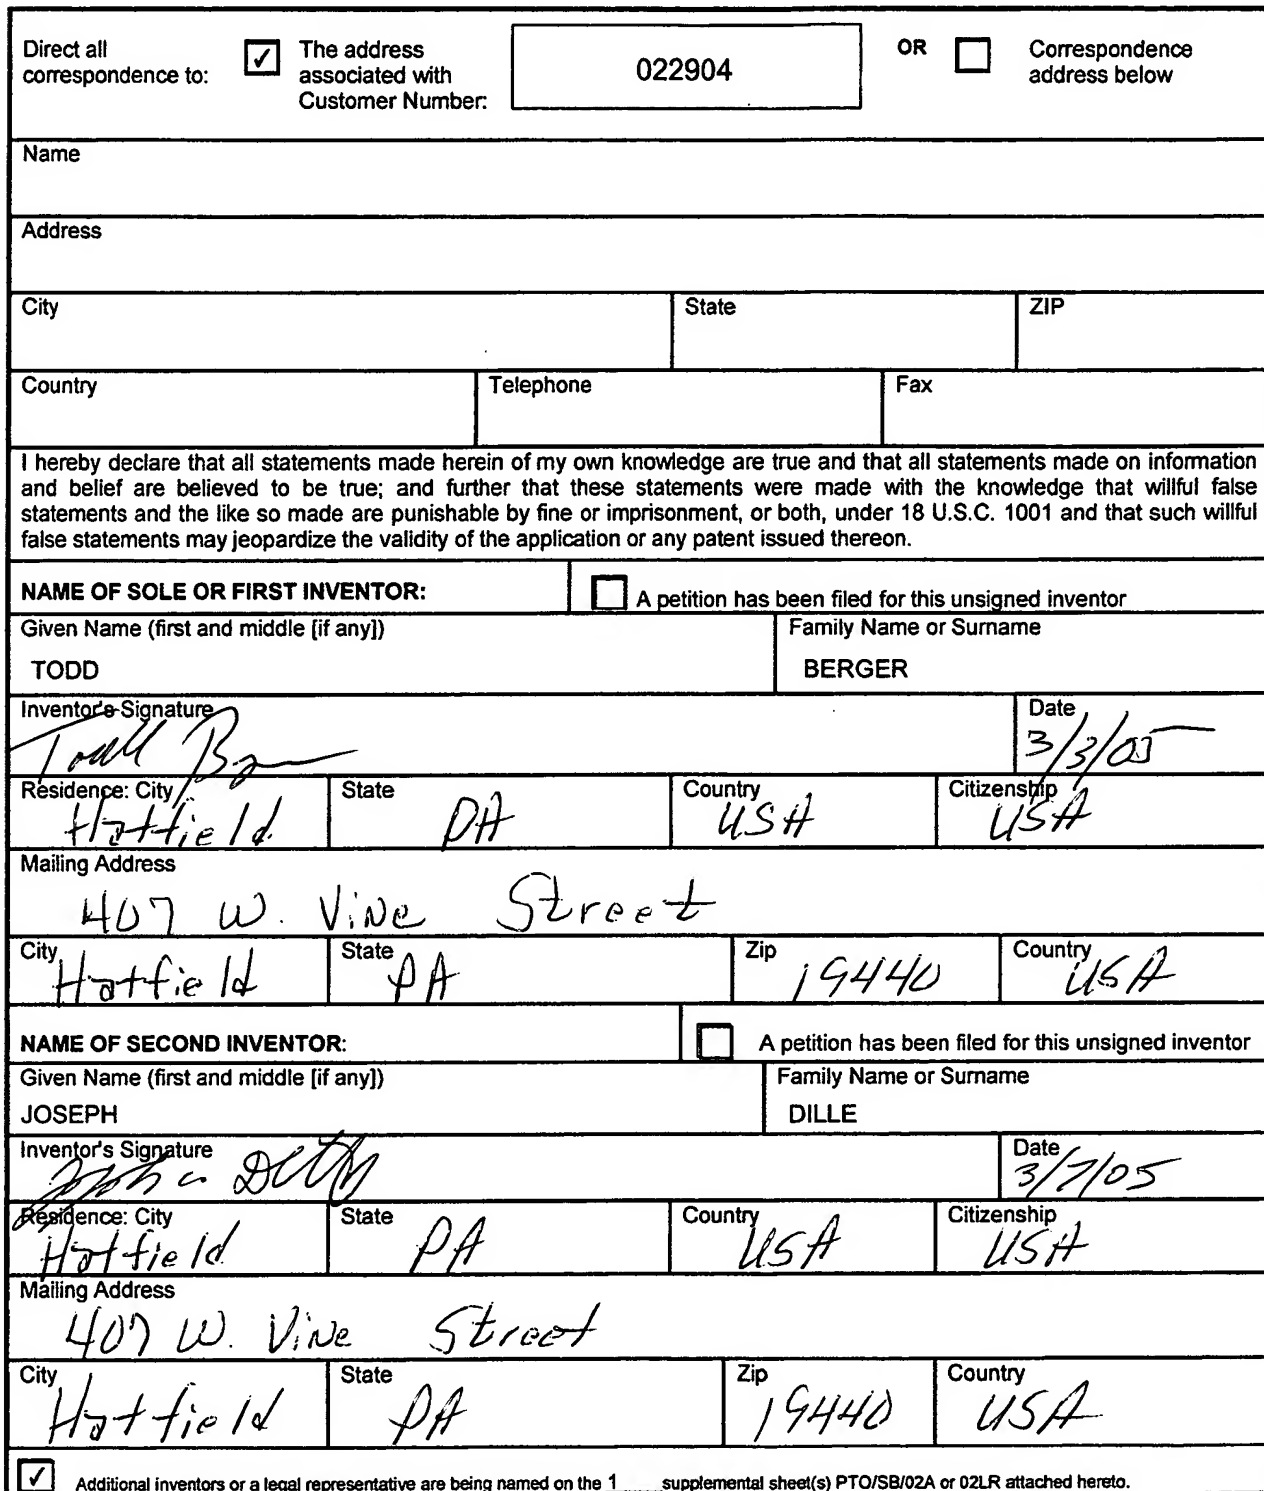 Direct all correspondence to: ✓ The address associated with Customer Number: 022904 OR Correspondence address below
Name
Address
City State ZIP
Country Telephone Fax
I hereby declare that all statements made herein of my own knowledge are true and that all statements made on information
and belief are believed to be true; and further that these statements were made with the knowledge that willful false
statements and the like so made are punishable by fine or imprisonment, or both, under 18 U.S.C. 1001 and that such willful
false statements may jeopardize the validity of the application or any patent issued thereon.
NAME OF SOLE OR FIRST INVENTOR: A petition has been filed for this unsigned inventor
Given Name (first and middle [if any]) Family Name or Surname
TODD BERGER
Inventor's Signature Date
3/3/05
Residence: City State Country Citizenship
Hatfield PA USA USA
Mailing Address
407 W. Vine Street
City State Zip Country
Hatfield PA 19440 USA
NAME OF SECOND INVENTOR: A petition has been filed for this unsigned inventor
Given Name (first and middle [if any]) Family Name or Surname
JOSEPH DILLE
Inventor's Signature Date
3/7/05
Residence: City State Country Citizenship
Hatfield PA USA USA
Mailing Address
407 W. Vine Street
City State Zip Country
Hatfield PA 19440 USA
✓ Additional inventors or a legal representative are being named on the 1 supplemental sheet(s) PTO/SB/02A or 02LR attached hereto.